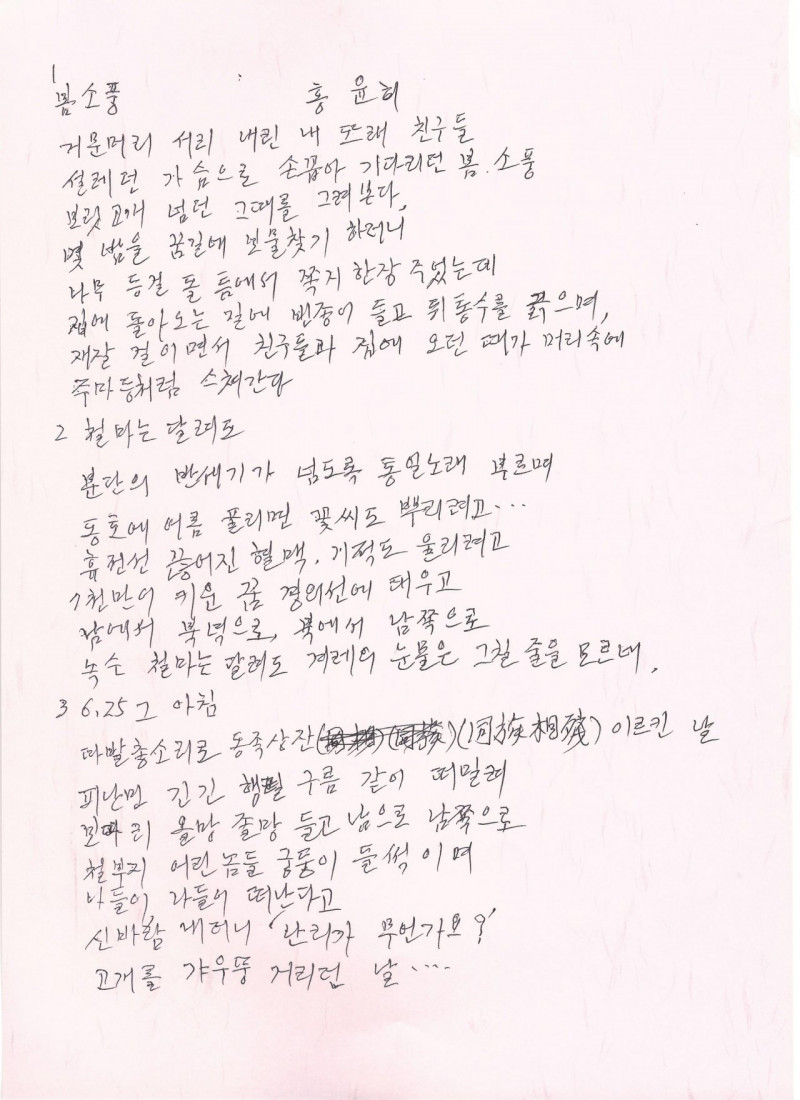 1
봄소풍 홍 윤희
거문머리 서리 내린 내 또래 친구들
설레던 가슴으로 손꼽아 기다리던 봄.소풍
보릿고개 넘던 그때를 그려본다,
몇 밤을 꿈길에 보물찾기 하더니
나무 등걸 돌 틈에서 쪽지 한장 주었는데
집에 돌아오는 길에 빈종이 들고 뒤통수를 긁으며,
재잘 걸이면서 친구들과 집에 오던 때가 머리속에
주마등처럼 스쳐간다
2 철마는 달려도
분단의 반세기가 넘도록 통일노래 부르며
동토에 어름 풀리면 꽃씨도 뿌리려고...
휴전선 끊어진 혈맥, 기적도 울리려고
7천만이 키운 꿈 경의선에 태우고
남에서 북녘으로, 북에서 남쪽으로
녹슨 철마는 달려도 겨레의 눈물은 그칠 줄을 모르네,
3 6.25 그 아침
따발총소리로 동족상잔(同族相殘) 이르킨 날
피난민 긴긴 행렬 구름 같이 떠밀려
보따리 올망 졸망 들고 남으로 남쪽으로
철부지 어린 놈들 궁둥이 들썩 이며
나들이 나들이 떠난다고
신바람 내더니 '난리가 무언가요?'
고개를 갸우뚱 거리던 날....